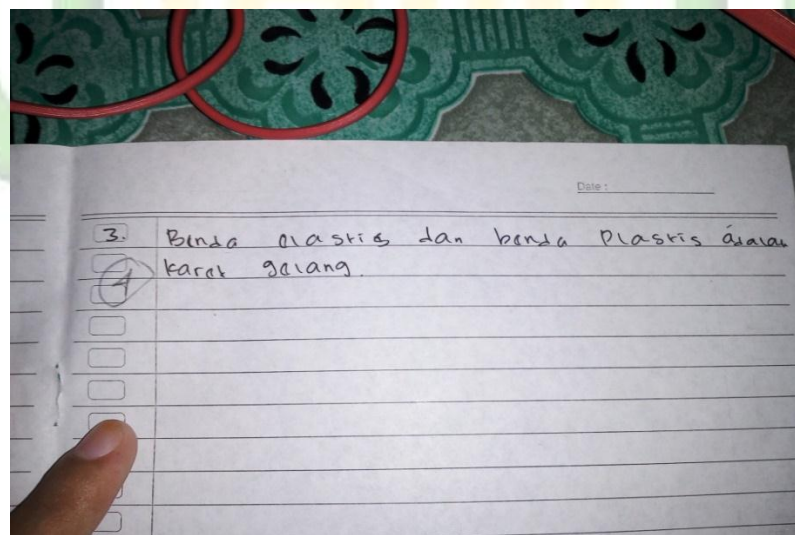 Date :
3. Benda elastis dan benda Plastis adalah
karet gelang.
4